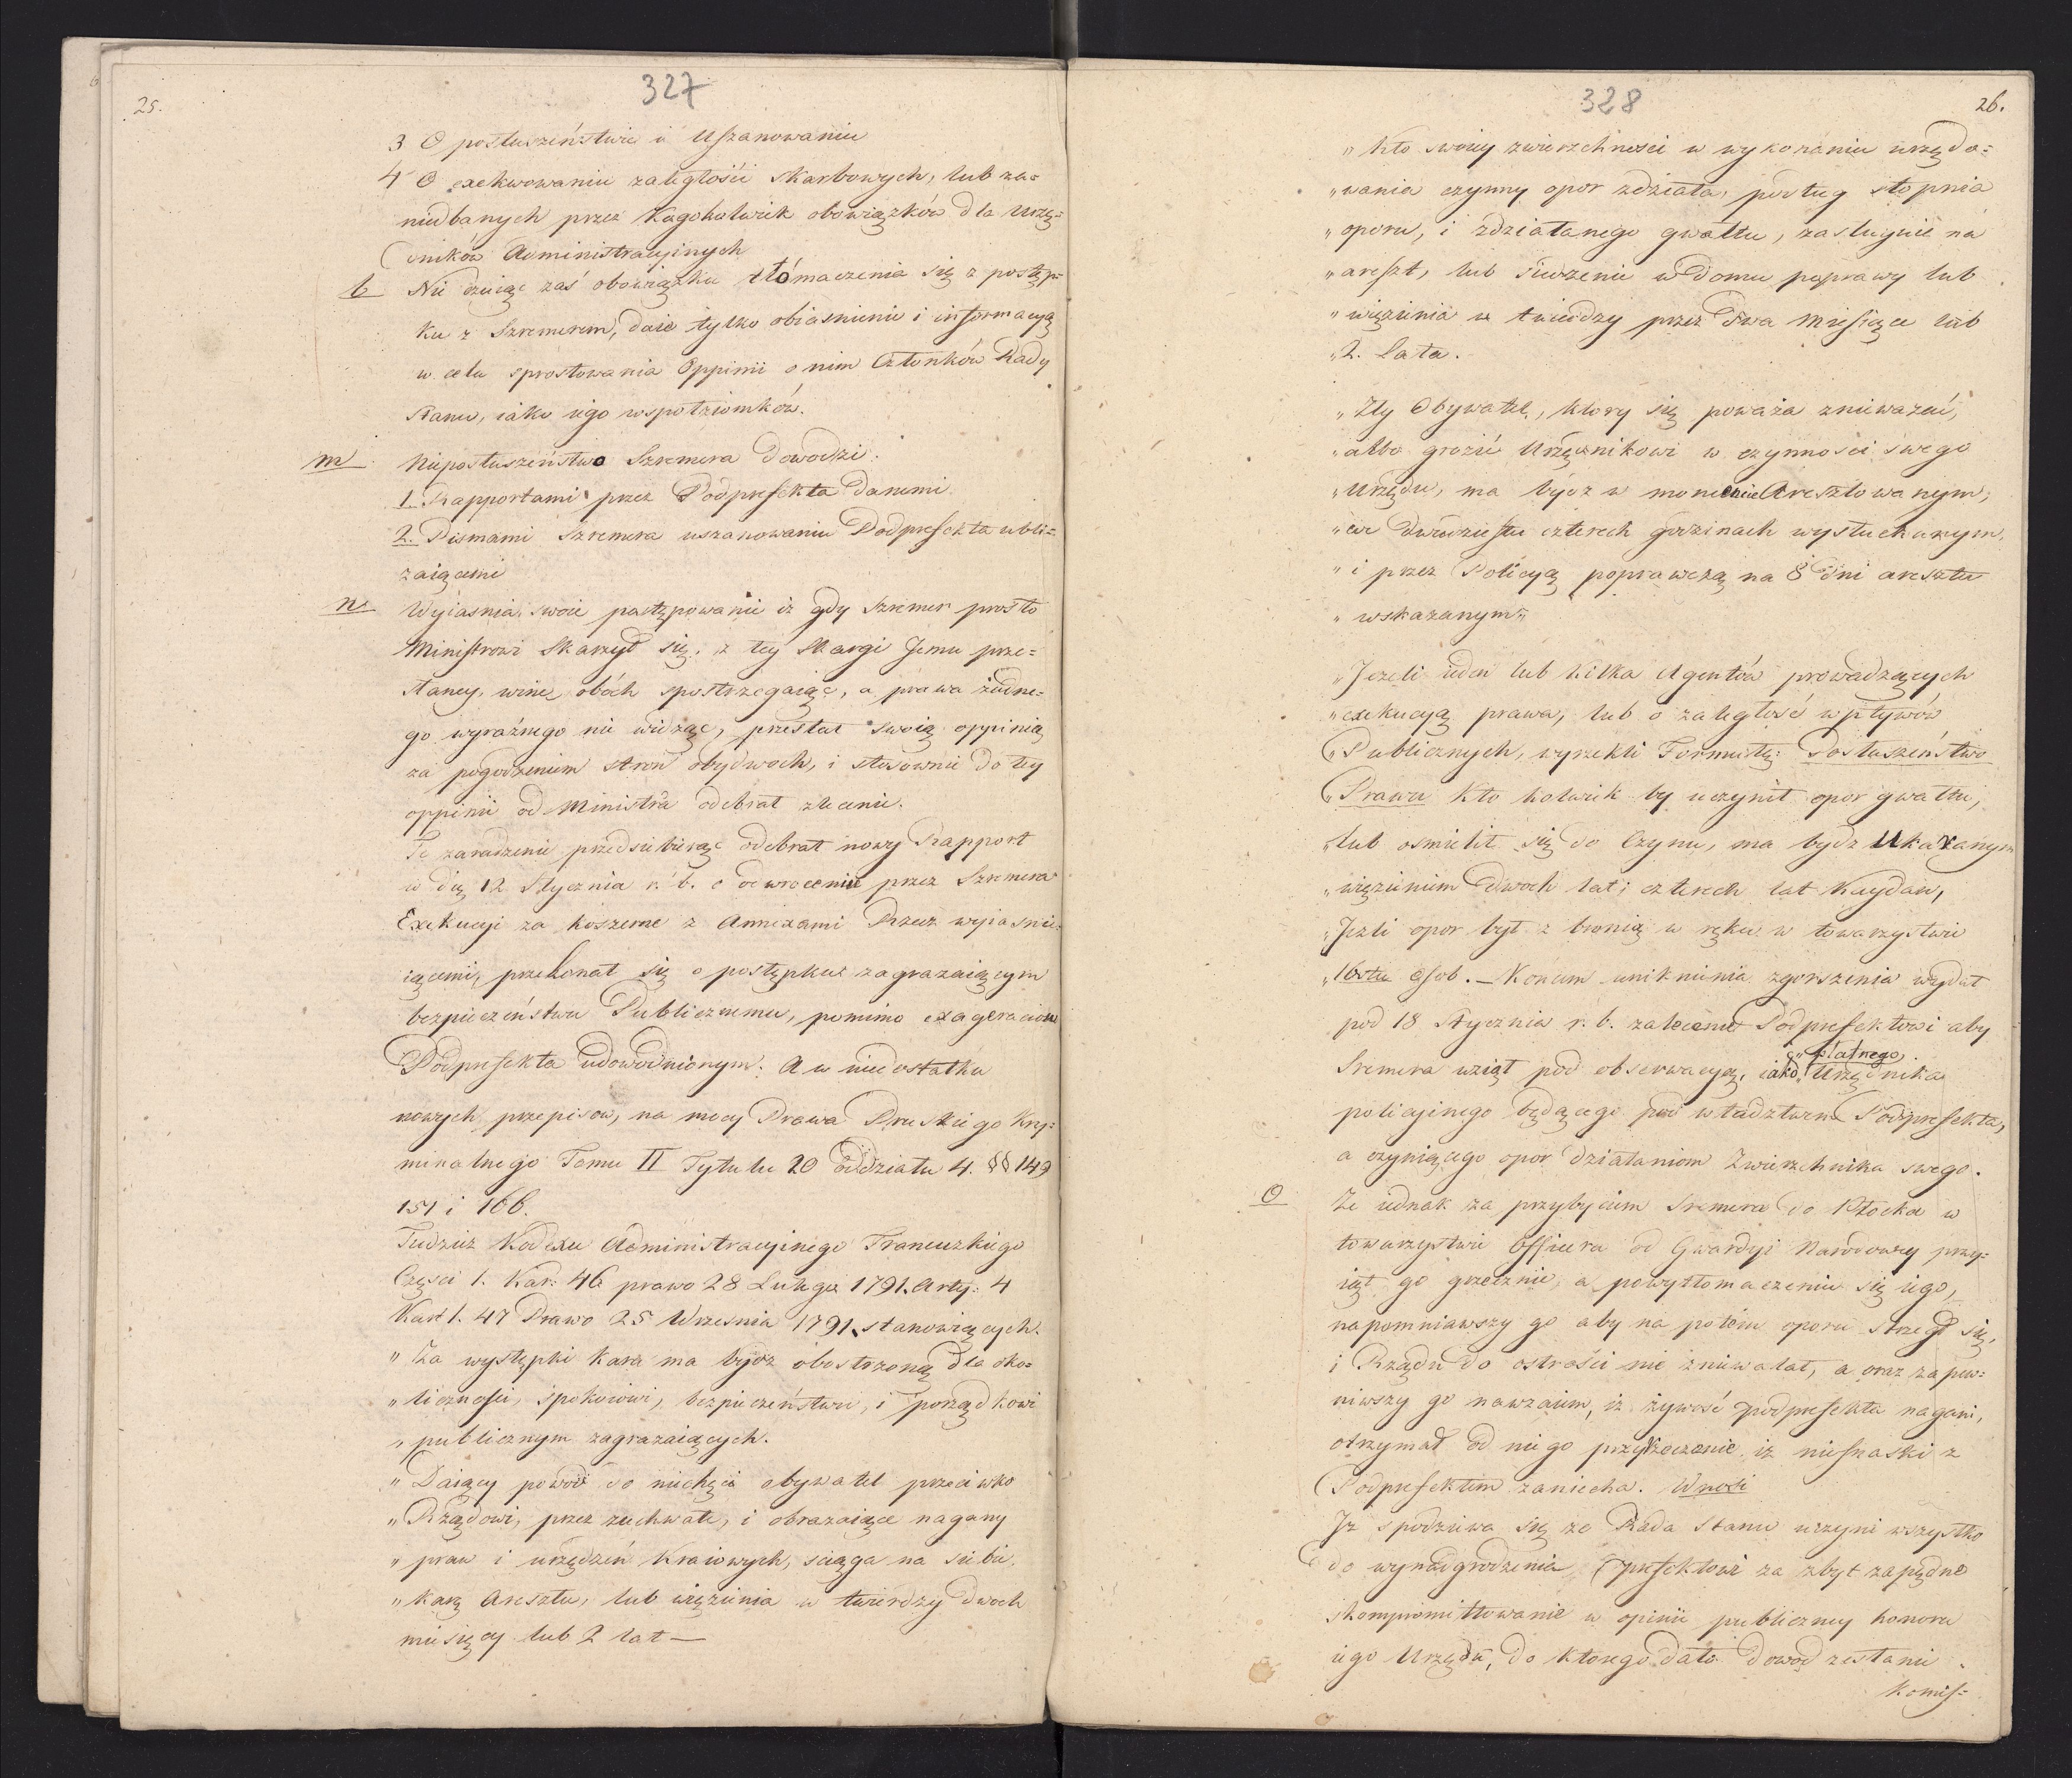 327
25.
3 O posłuszeństwie i Uszanowaniu
4 O exekwowaniu zaległości skarbowych, lub za=
niedbanych przez Kogokolwiek obowiązków dla Urzę=
dników Administracyinych
b Nie czuiąc zaś obowiązku tłómaczenia się z postęp=
ku z Szremerem, daie tylko obiasnienie i informacyą
w celu sprostowania Oppinii o nim Członków Rady
Stanu, iako iego wspołziomków.
m Nieposłuszeństwo Szremera dowodzi.
1. Rapportami przez Podprefekta danemi
2. Pismami Szremera uszanowaniu Podprefekta ubli=
zaiącemi
n Wyiasnia swoie postępowanie iz gdy Szremer prosto
Ministrowi skarzył się, z tey Skargi Jemu prze=
słaney, winę obóch spostrzegaiąc, a prawa żadne=
go wyraźnego nie widząc, przesłał swoią oppinią
za pogodzeniem stron obydwoch, i stosownie do tey
oppinii od Ministra odebrał zlecenie.
Te zaradzenie przedsiebiorąc odebrał nowy Rapport
w dię 12 Stycznia r. b. o odwroceniu przez Szremera
Exekucyi za koszerne z Annexami Rzecz wyiasnia=
iącemi, przekonał się o postępku zagrazaiącym
bezpieczeństwu Publicznemu, pomimo exageracion
Podprefekta udowodnionym. A w niedostatku
nowych przepisow, na mocy Prawa Pruskiego Kry=
minalnego Tomu II Tytułu 20 oddziału 4. §§ 149
151 i 166.
Tudziez Kodexu Administracyinego Francuzkiego
Częsci 1. Kar: 46 prawo 28 Lutego 1791. Arty: 4
Kart 1. 47 Prawo 25 Wrzesnia 1791. stanowiących.
„ Za występki Kara ma bydz obostrzoną dla oko=
„ licznosci, spokoiowi, bezpieczeństwu, i porządkowi
„ publicznym zagrazaiących.
„ Daiący powod do niechęci obywatel przeciwko
„ Rządowi, przez zuchwałe, i obrazaiące nagany
„ praw i urządzeń Kraiowych, sciąga na siebie
„ karę Aresztu, lub więzienia w twierdzy dwoch
miesięcy lub 2 lat —
328
26.
„ Kto swoiey zwierzchnosci w wykonaniu urzędo=
„ wania czynny opor zdziała, podług stopnia
„ oporu, i zdziałanego gwałtu, zasługuie na
„ areszt, lub siedzenie w domu poprawy lub
„ więzienia w twierdzy przez dwa Miesiące lub
„ 2. lata.
„ Zły Obywatel, ktory się poważa znieważać,
„ albo grozić Urzędnikowi w czynnosci swego
„ Urzędu, ma bydz w momencie Aresztowanym,
„ we dwudziestu czterech godzinach wysłuchanym,
„ i przez Policyą poprawczą na 8 dni aresztu
„ wskazanym„
„ Jezeli ieden lub kilka Agentów prowadzących
„ exekucyą prawa, lub o zaległość wpływów
„ Publicznych, wyrzekli Formułę: Posłuszeństwo
„ Prawu Kto kolwiek by uczynił opor gwałtu,
„ lub osmielił się do Czynu, ma bydz Ukaranym
„ więzieniem dwoch lat; czterech lat Kaydan,
„ Jezli opor był z bronią w ręku w towarzystwie
„ 16stu osob. — Końcem uniknienia zgorszenia wydał
pod 18 Stycznia r. b. zalecenie Podprefektowi aby
Sremera wziął pod obserwacyą, iako „płatnego„ Urzędnika
policyinego będącego pod władztwem Podprefekta,
a czyniącego opor działaniom Zwierzchnika swego.
O Ze iednak za przybyciem Sremera do Płocka w
towarzystwie Officera od Gwardyi Narodowey przy=
iął go grzecznie, a po wytłomaczeniu się iego,
napomniawszy go aby na potém oporu strzegł się,
i Rządu do ostrości nie zniewalał, a oraz zapew=
niwszy go nawzaiem, iz żywość podprefekta nagani,
otrzymał od niego przyrzeczenie, iz niesnaski z
Podprefektem zaniecha. Wnosi
Iz spodziewa się ze Rada Stanu uczyni wszystko
do wynadgrodzenia Prefektowi za zbyt zapędne
skompromittowanie w opinii publiczney honoru
iego Urzędu, do ktorego dała dowod zesłanie
Komis=